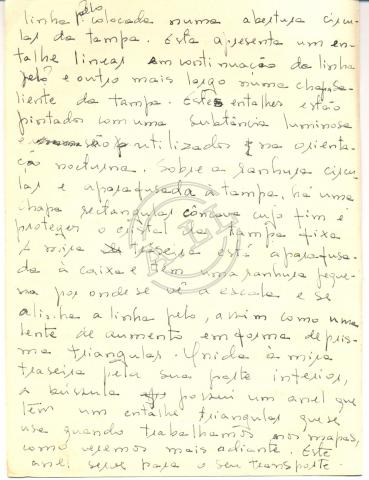 pêlo
linha colocada numa abertura circu-
lar da tampa. Esta apresenta um en-
talhe linear em continuação da linha
pêlo e outro mais largo numa chapa sa-
liente da tampa. Êstes entalhes estão
pintados com uma substância luminosa
e são utilizados na orienta-
ção nocturna. Sobre a ranhura circu-
lar e aparafusada à tampa, há uma
chapa rectangular côncava cujo fim é
proteger o cristal da tampa fixa
A mira traseira está aparafusa-
da à caixa e tem uma ranhura peque-
na por onde se vê a escala e se
alinha a linha pelo, assim como uma
lente de aumento em forma de pris-
ma triangular. Unida à mira
traseira pela sua parte inferior,
a bússula possui um anel que
têm um entalhe triangular que se
usa quando trabalhamos nos mapas,
como veremos mais adiante. Este
anel serve para o seu transporte.